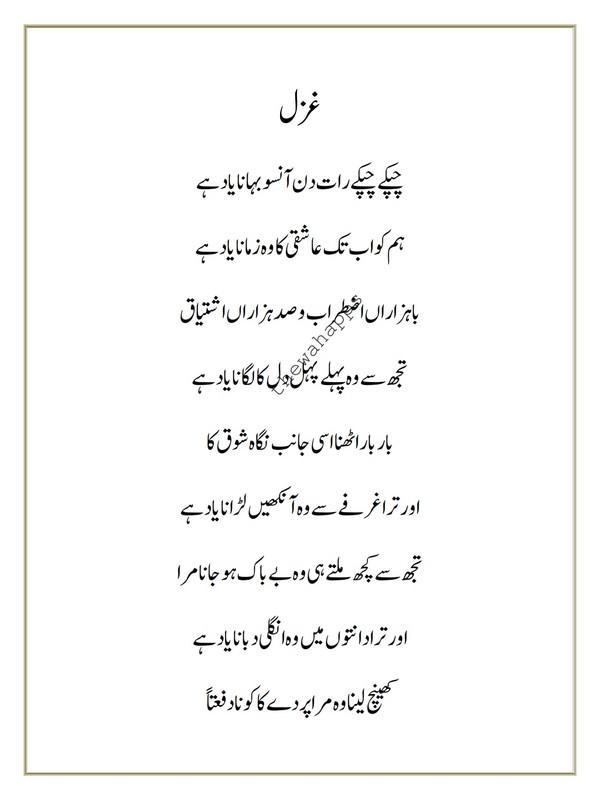 غزل
چپکے چپکے رات دن آنسو بہانا یاد ہے
ہم کو اب تک عاشقی کا وہ زمانا یاد ہے
باہزاراں اضطراب و صد ہزاراں اشتیاق
تجھ سے وہ پہلے پہل دل کا لگانا یاد ہے
بار بار اٹھنا اسی جانب نگاہ شوق کا
اور ترا غرفے سے وہ آنکھیں لڑانا یاد ہے
تجھ سے کچھ ملتے ہی وہ بے باک ہو جانا مرا
اور ترا دانتوں میں وہ انگلی دبانا یاد ہے
کھینچ لینا وہ مرا پردے کا کونا دفعتاً